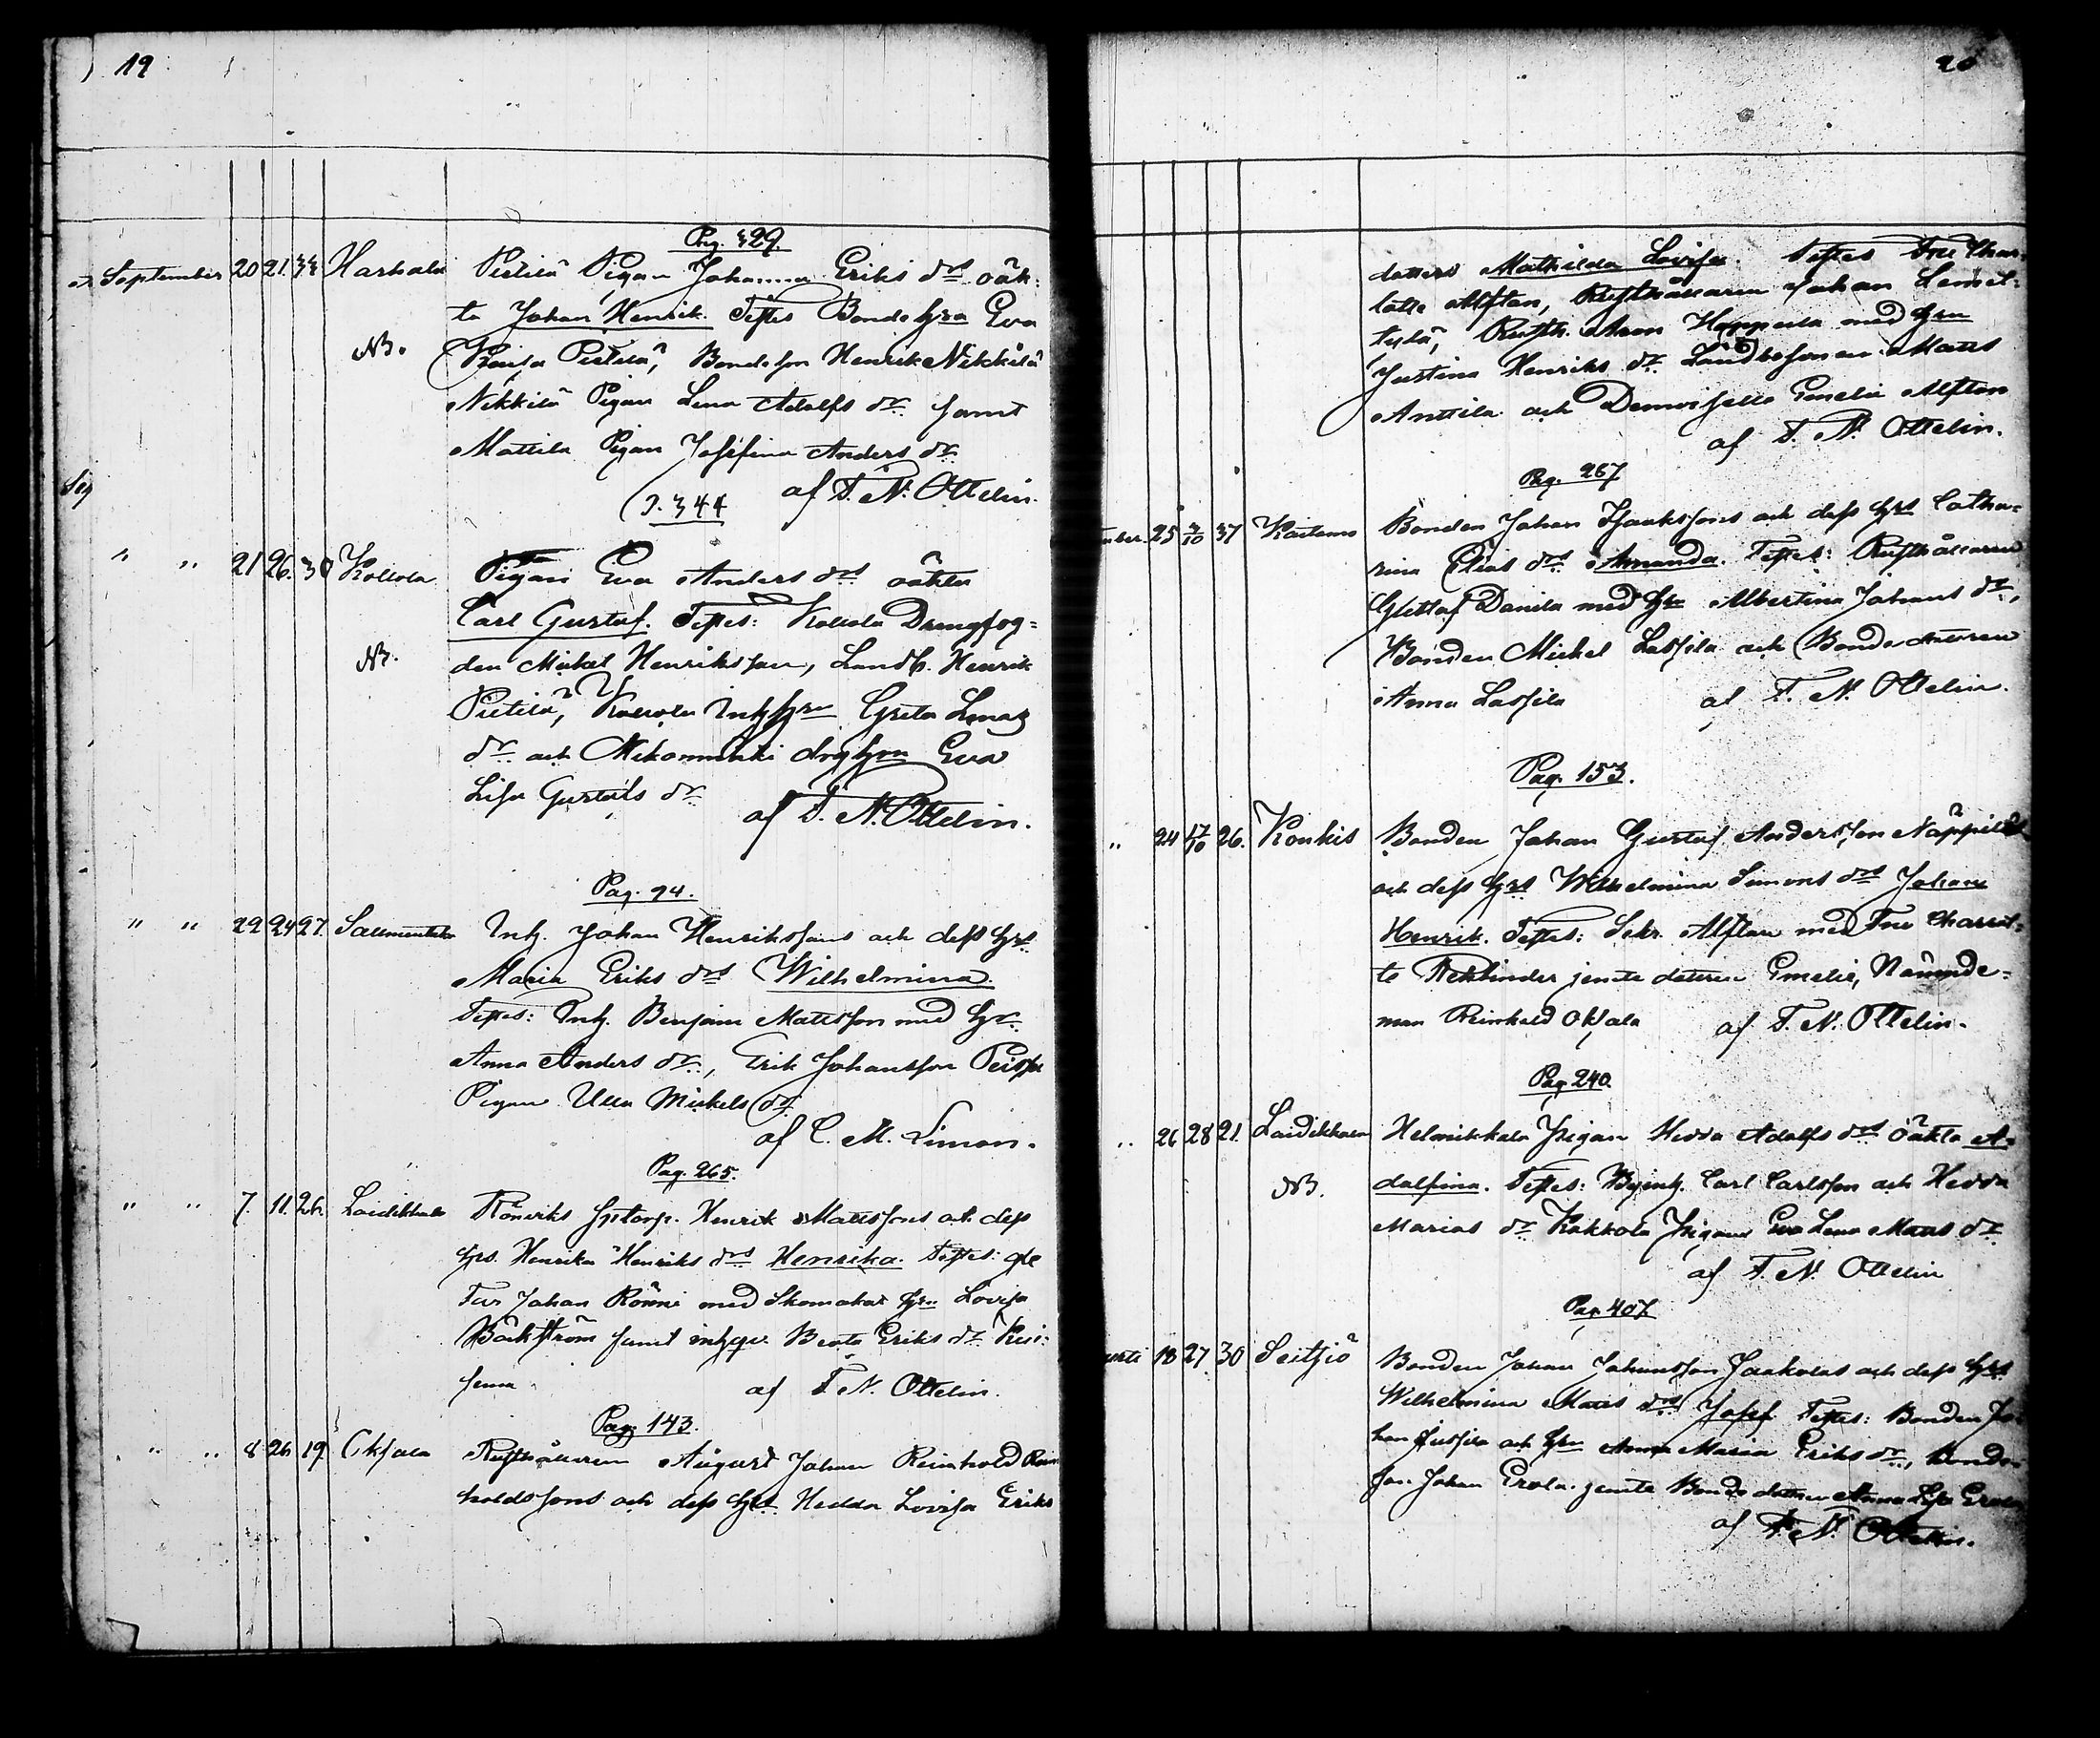 19
Pag. 329.
September 20 21. 33 Harhala Pietilä Pigan Johanna Eriks drs oäk:
ta Johan Henrik. Testes Bondehru Eva
NB. Kaisa Pietilä, Bondeson Henrik Nikkilä
Nikkilä Pigan Lena Adolfs dr. samt
Mattila Pigan Josefina Anders dr.
af F. N. Ottelin.
P. 344
" " 21 26. 30 Kollola Pigan Eva Anders drs oäkta
Carl Gustaf. Testes: Kollola Drengfog=
NB. den Mickel Henriksson, Landb. Henrik
Pietilä, Kollola Inhhru Greta Lena
dr. och drghru Eva
Lisa Gustafs dr.
af F. N. Ottelin.
Pag. 94.
" " 22 24 27. Salmentaka Inh. Johan Henrikssons och dess hrs
Maria Eriks drs Wilhelmina.
Testes: Inh. Benjam Mattsson med hr.
Anna Anders dr., Erik Johansson
Pigan Ulla Mickels dr.
af C. M. Limon.
Pag. 265.
" " 7. 11. 26. Laidikkala Henrik Mattssons och dess
hrs. Henrika Henriks drs Henrika. Testes:
Johan Rönni med Skomakar hru Lovisa
Bäckström samt Beata Eriks dr.
af F. N. Ottelin.
Pag. 143.
" " 8 26 19. Oksala Rusthållaren August Johan Reinhold Rein
holdssons och dess hrs Hedda Lovisa Eriks
20
dotters Mathilda Lovisa. Testes Fru Char:
lotte Alftan, Rusthållaren Johan
Rusth. Aron med hru
Justina Henriks dr. Landbosonen Matts
Anttila och Demoiselle Emelie Alftan
af F. N. Ottelin.
Pag. 267.
25 2/10 37 Kaitamo Bonden Johan Isaakssons och dess hrs Catha=
rina Elias drs Amanda. Testes: Rusthållaren
Gustaf Danila med hru Albertina Johans dr.,
Bonden Mickel Lassila och Bonde dottren
Anna Lassila af F. N. Ottelin.
Pag. 153.
" 24 17/10 26. Konkis Bonden Johan Gustaf Andersson Näppilä
och dess hrs Wilhelmina Simons drs Johan
Henrik. Testes: Sekr. Alftan med Fru Charlot=
te Rehbinder jemte dotren Emelie, Nämnde=
man Reinhold Oksala af F. N. Ottelin.
Pag. 240.
" 26 28 21. Laidikkala Helmikkala Pigan Hedda Adolfs drs oäkta A=
NB. dolfina. Testes: Byinh. Carl Carlsson och Hedda
Marias dr. Kokkola Pigan Eva Lena Matts dr.
af F. N. Ottelin
Pag. 407.
18 27. 30 Seitsiö Bonden Johan Johansson Jaakolas och dess hrs
Wilhelmina Matts drs Josef. Testes: Bonden Jo=
han Jussila och hru Anna Maria Eriks dr., Bonde=
son Johan Erola jemte Bonde dottren Anna Lisa Erola
af F. N. Ottelin.